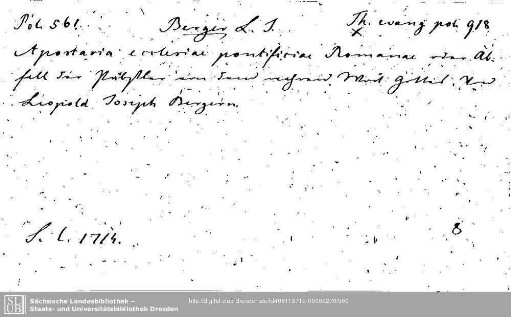 Pol. 561. Berger L. J. Th. evang. pol. 918
Apostasia ecclesiae pontificiae Romanae oder Ab-
fall der Päbstler von dem wahren Wort Gottes. Von
Leopold Joseph Bergern.
S. l. 1714. 8
SLUB
Sächsische Landesbibliothek –
Staats- und Universitätsbibliothek Dresden